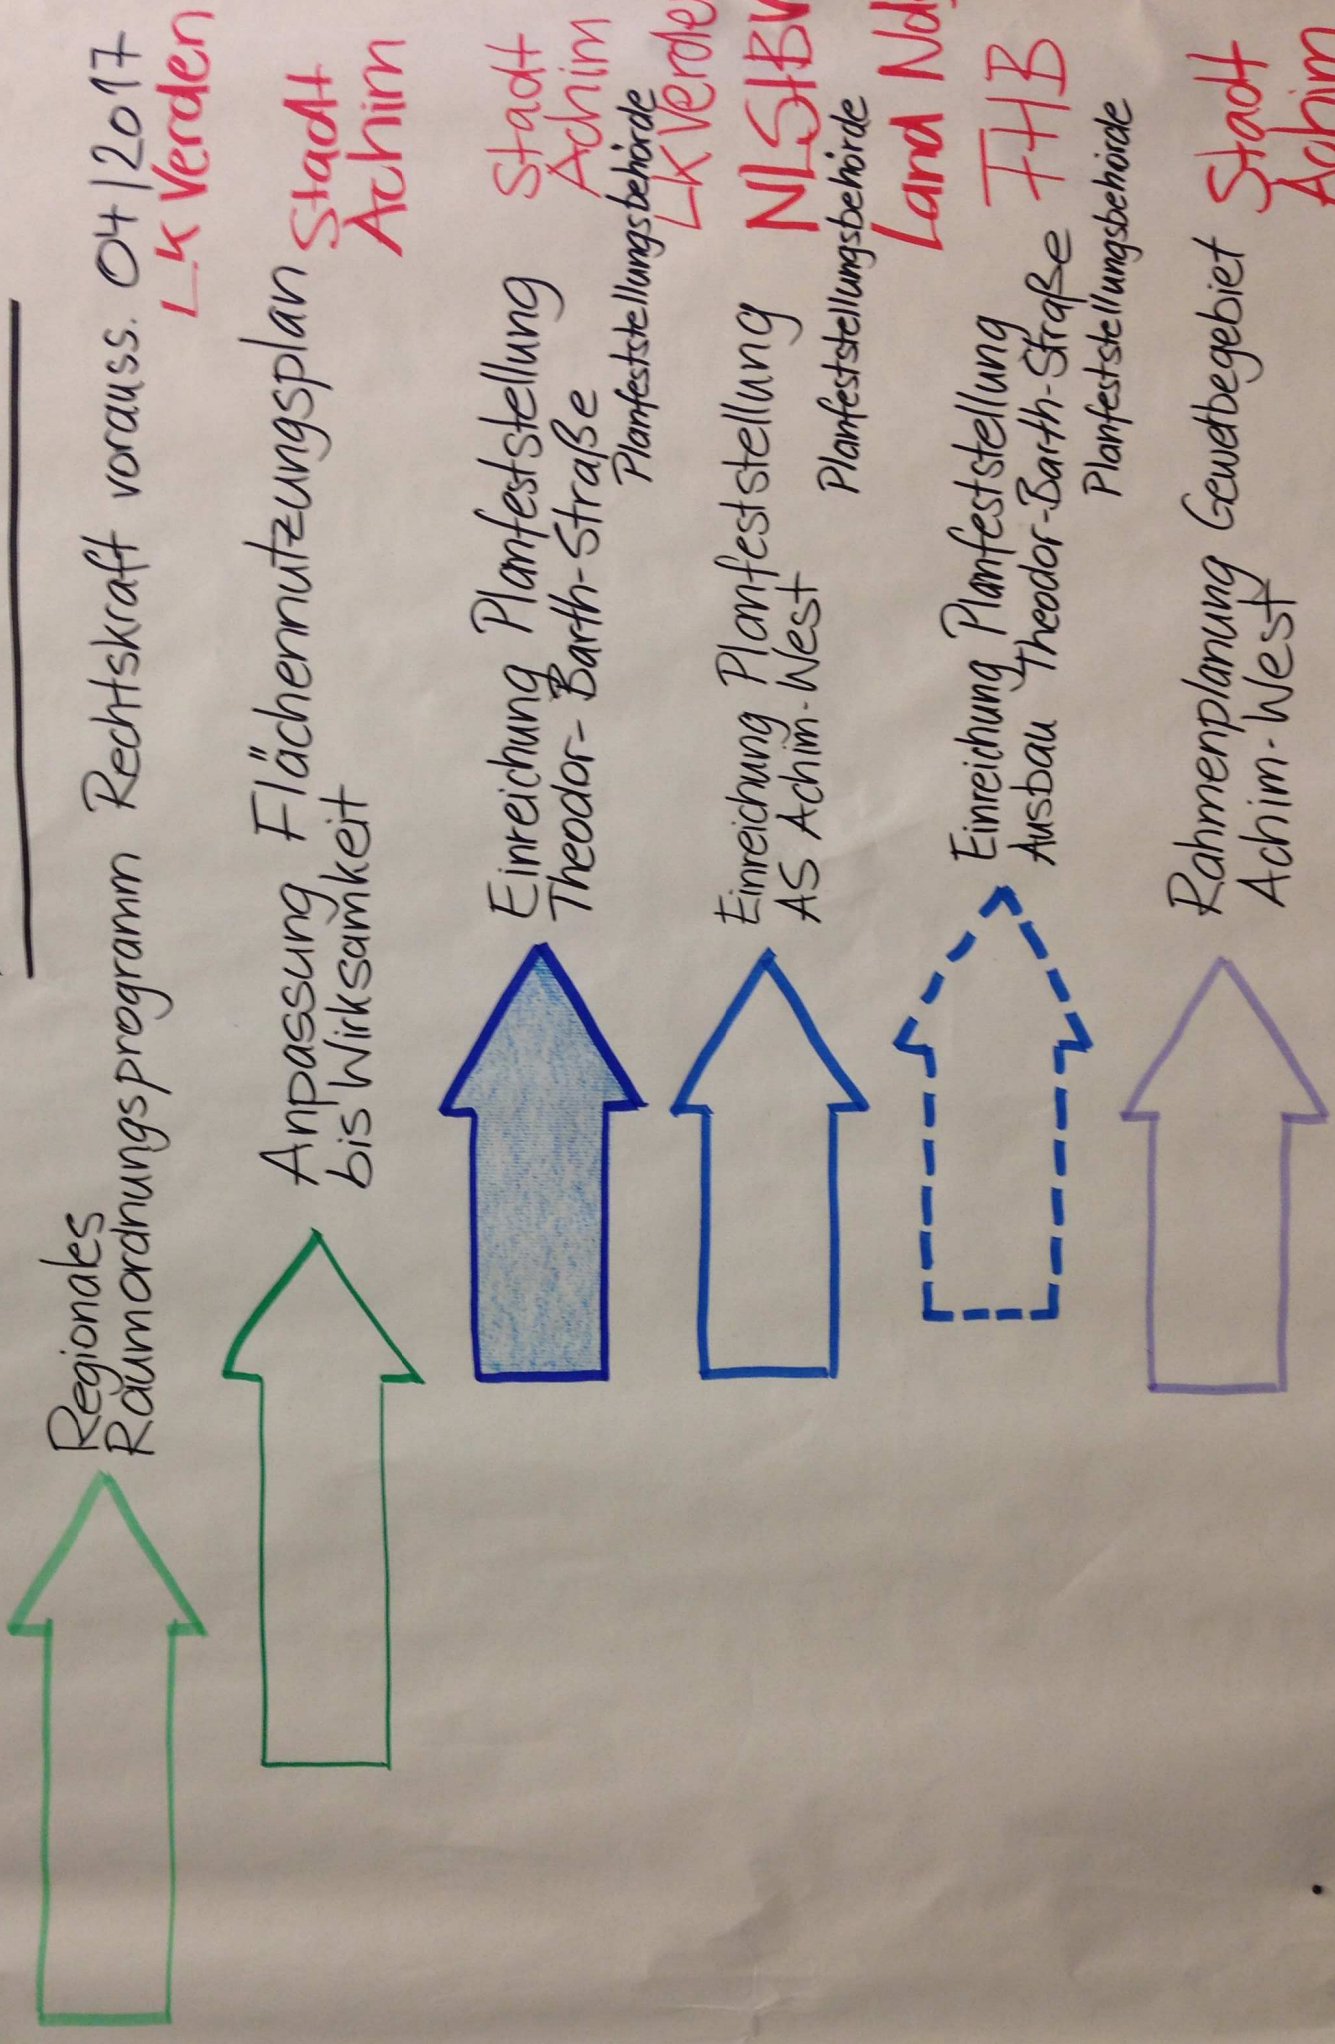 Regionales
Raumordnungsprogramm Rechtskraft vorauss. 04/2017
LK Verden
Anpassung Flächennutzungsplan
bis Wirksamkeit
Stadt
Achim
Einreichung Planfeststellung
Theodor-Barth-Straße
Stadt
Achim
Planfeststellungsbehörde
LK Verde
Einreichung Planfeststellung
AS Achim-West
NLStBV
Planfeststellungsbehörde
Land Nds
Einreichung Planfeststellung
Ausbau Theodor-Barth-Straße
FHB
Planfeststellungsbehörde
Rahmenplanung Gewerbegebiet
Achim-West
Stadt
Achim